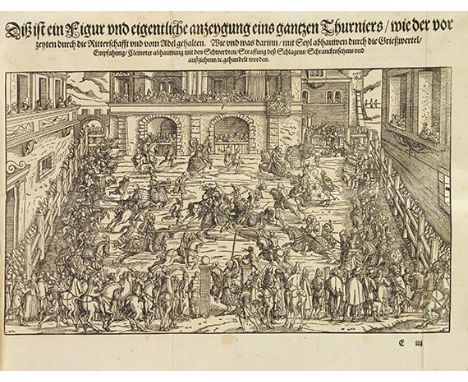 Diß ist ein Figur vnd eigentliche anzeygung eins gantzen Thurniers / wie der vor
zeyten durch die Ritterschafft vnd vom Adel gehalten. Wie vnd was darinn / mit Seyl abhauwen durch die Grießwertel /
Empfahung / Kleinoter abhauwung mit den Schwerdten / Straffung deß Schlagens / Schranckenschens vnd
außziehens / ꝛc. gehandelt worden.
E iiij